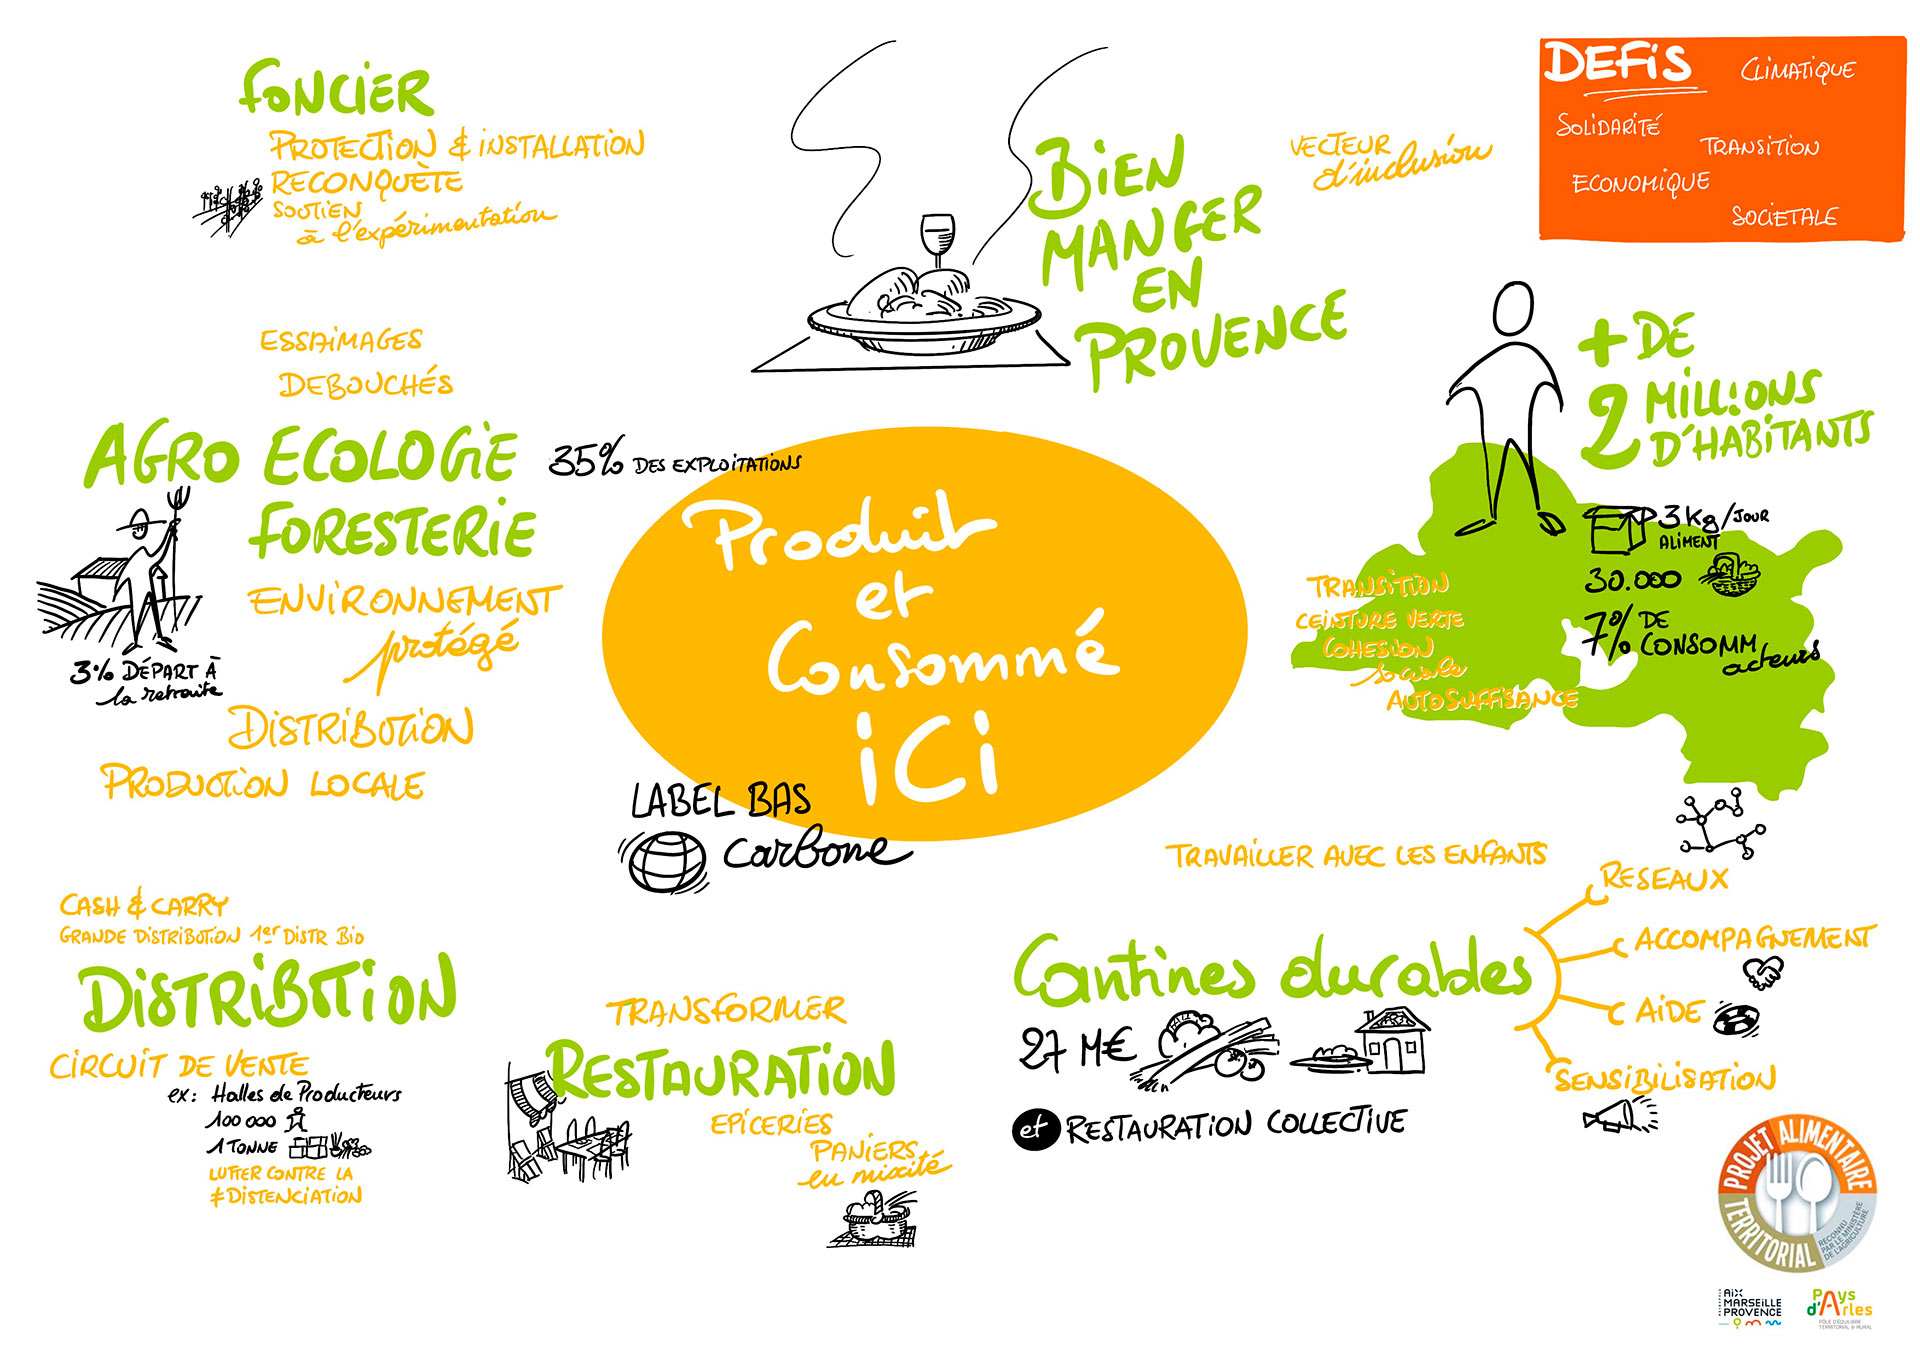 FONCIER
PROTECTION & INSTALLATION
RECONQUÈTE
SOUTIEN
à l'expérimentation
BIEN
MANGER
EN
PROVENCE
VECTEUR
d'inclusion
DEFIS
CLIMATIQUE
SOLIDARITÉ
TRANSITION
ECONOMIQUE
SOCIETALE
+ DE
2 MILLIONS
D'HABITANTS
3 Kg/JOUR
ALIMENT
30.000
7% DE
CONSOMM
acteurs
TRANSITION
CEINTURE VERTE
COHESION
sociale
AUTOSUFFISANCE
ESSAIMAGES
DEBOUCHÉS
AGRO ECOLOGIE
FORESTERIE
35% DES EXPLOITATIONS
ENVIRONNEMENT
protégé
3% DÉPART À
la retraite
DISTRIBUTION
PRODUCTION LOCALE
Produit
et
Consommé
ICI
LABEL BAS
carbone
CASH & CARRY
GRANDE DISTRIBUTION 1er DISTR BIO
DISTRIBUTION
CIRCUIT DE VENTE
ex: Halles de Producteurs
100 000
1 TONNE
LUTTER CONTRE LA
≠ DISTENCIATION
TRANSFORMER
RESTAURATION
EPICERIES
PANIERS
en mixité
TRAVAILLER AVEC LES ENFANTS
Cantines durables
27 M€
et RESTAURATION COLLECTIVE
RESEAUX
ACCOMPAGNEMENT
AIDE
SENSIBILISATION
PROJET ALIMENTAIRE
TERRITORIAL
RECONNU
PAR LE MINISTÈRE
DE L'AGRICULTURE
AIX
MARSEILLE
PROVENCE
PAys
d'Arles
PÔLE D'ÉQUILIBRE
TERRITORIAL & RURAL